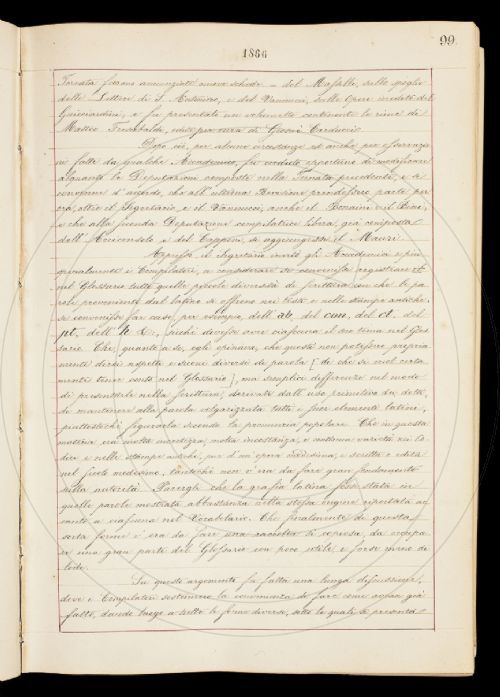 99
1866
Tornata furono annunziate nuove schede - del Mussafia, sullo spoglio
delle Lettere di S. Antonino, e del Vannucci, sulle Opere inedite del
Guicciardini; e fu presentato un volumetto contenente le rime di
Matteo Frescobaldi, edite per cura di Giosuè Carducci.
Dopo ciò, per alcune circostanze ed anche per osservazio
ni fatte da qualche Accademico, fu creduto opportuno di modificare
alquanto le Deputazioni composte nella Tornata precedente, e si
convenne d'accordo, che all'ultima Revisione prendessero parte per
ora, oltre il Segretario e il Vannucci, anche il Bonaini ed il Bini,
e che alla seconda Deputazione compilatrice libera, già composta
dall' Arciconsolo e del Capponi, si aggiungesse il Mauri.
Appresso il Segretario invitò gli Accademici e prin
cipalmente i Compilatori, a considerare se convenisse registrare
nel Glossario tutte quelle piccole diversità di scrittura con che le pa
role provenienti dal latino si offrono nei testi e nelle stampe antiche,
se convenisse far caso, per esempio dell' ab, del con, del ct, del
pt, dell' h &c., sicchè dovesse avere ciascuna il suo tema nel Glos
sario. Che, quanto a se, egli opinava, che queste non potessero propria
mente dirsi aspetti e suoni diversi di parola [di che si vuol certa
mente tener conto nel Glossario], ma semplici differenze nel modo
di presentarle nella scrittura, derivate dall' uso primitivo
di mantenere alla parola volgarizzata tutti i suoi elementi latini,
piuttostochè figurarla secondo la pronunzia popolare. Che in questa
materia era molta incertezza, molta incostanza, e continua varietà nei Co
dici e nelle stampe antiche, pur d'un'opera medesima, e scritta e edita
nel secolo medesimo, tantochè non v'era da fare gran fondamento
sulla autorità. Parergli che la grafia latina fosse stata in
quelle parole mostrata abbastanza nella stessa origine riportata ac
canto a ciascuna nel Vocabolario. Che finalmente di questa
sorta forme v'era da fare una raccolta sì copiosa, da occupa
re una gran parte del Glossario con poco utile e forse meno di
lode.
Su questo argomento fu fatta una lunga discussione,
dove i Compilatori sostennero la convenienza di fare come avean già
fatto, dando luogo a tutte le forme diverse, sotto le quali si presenta